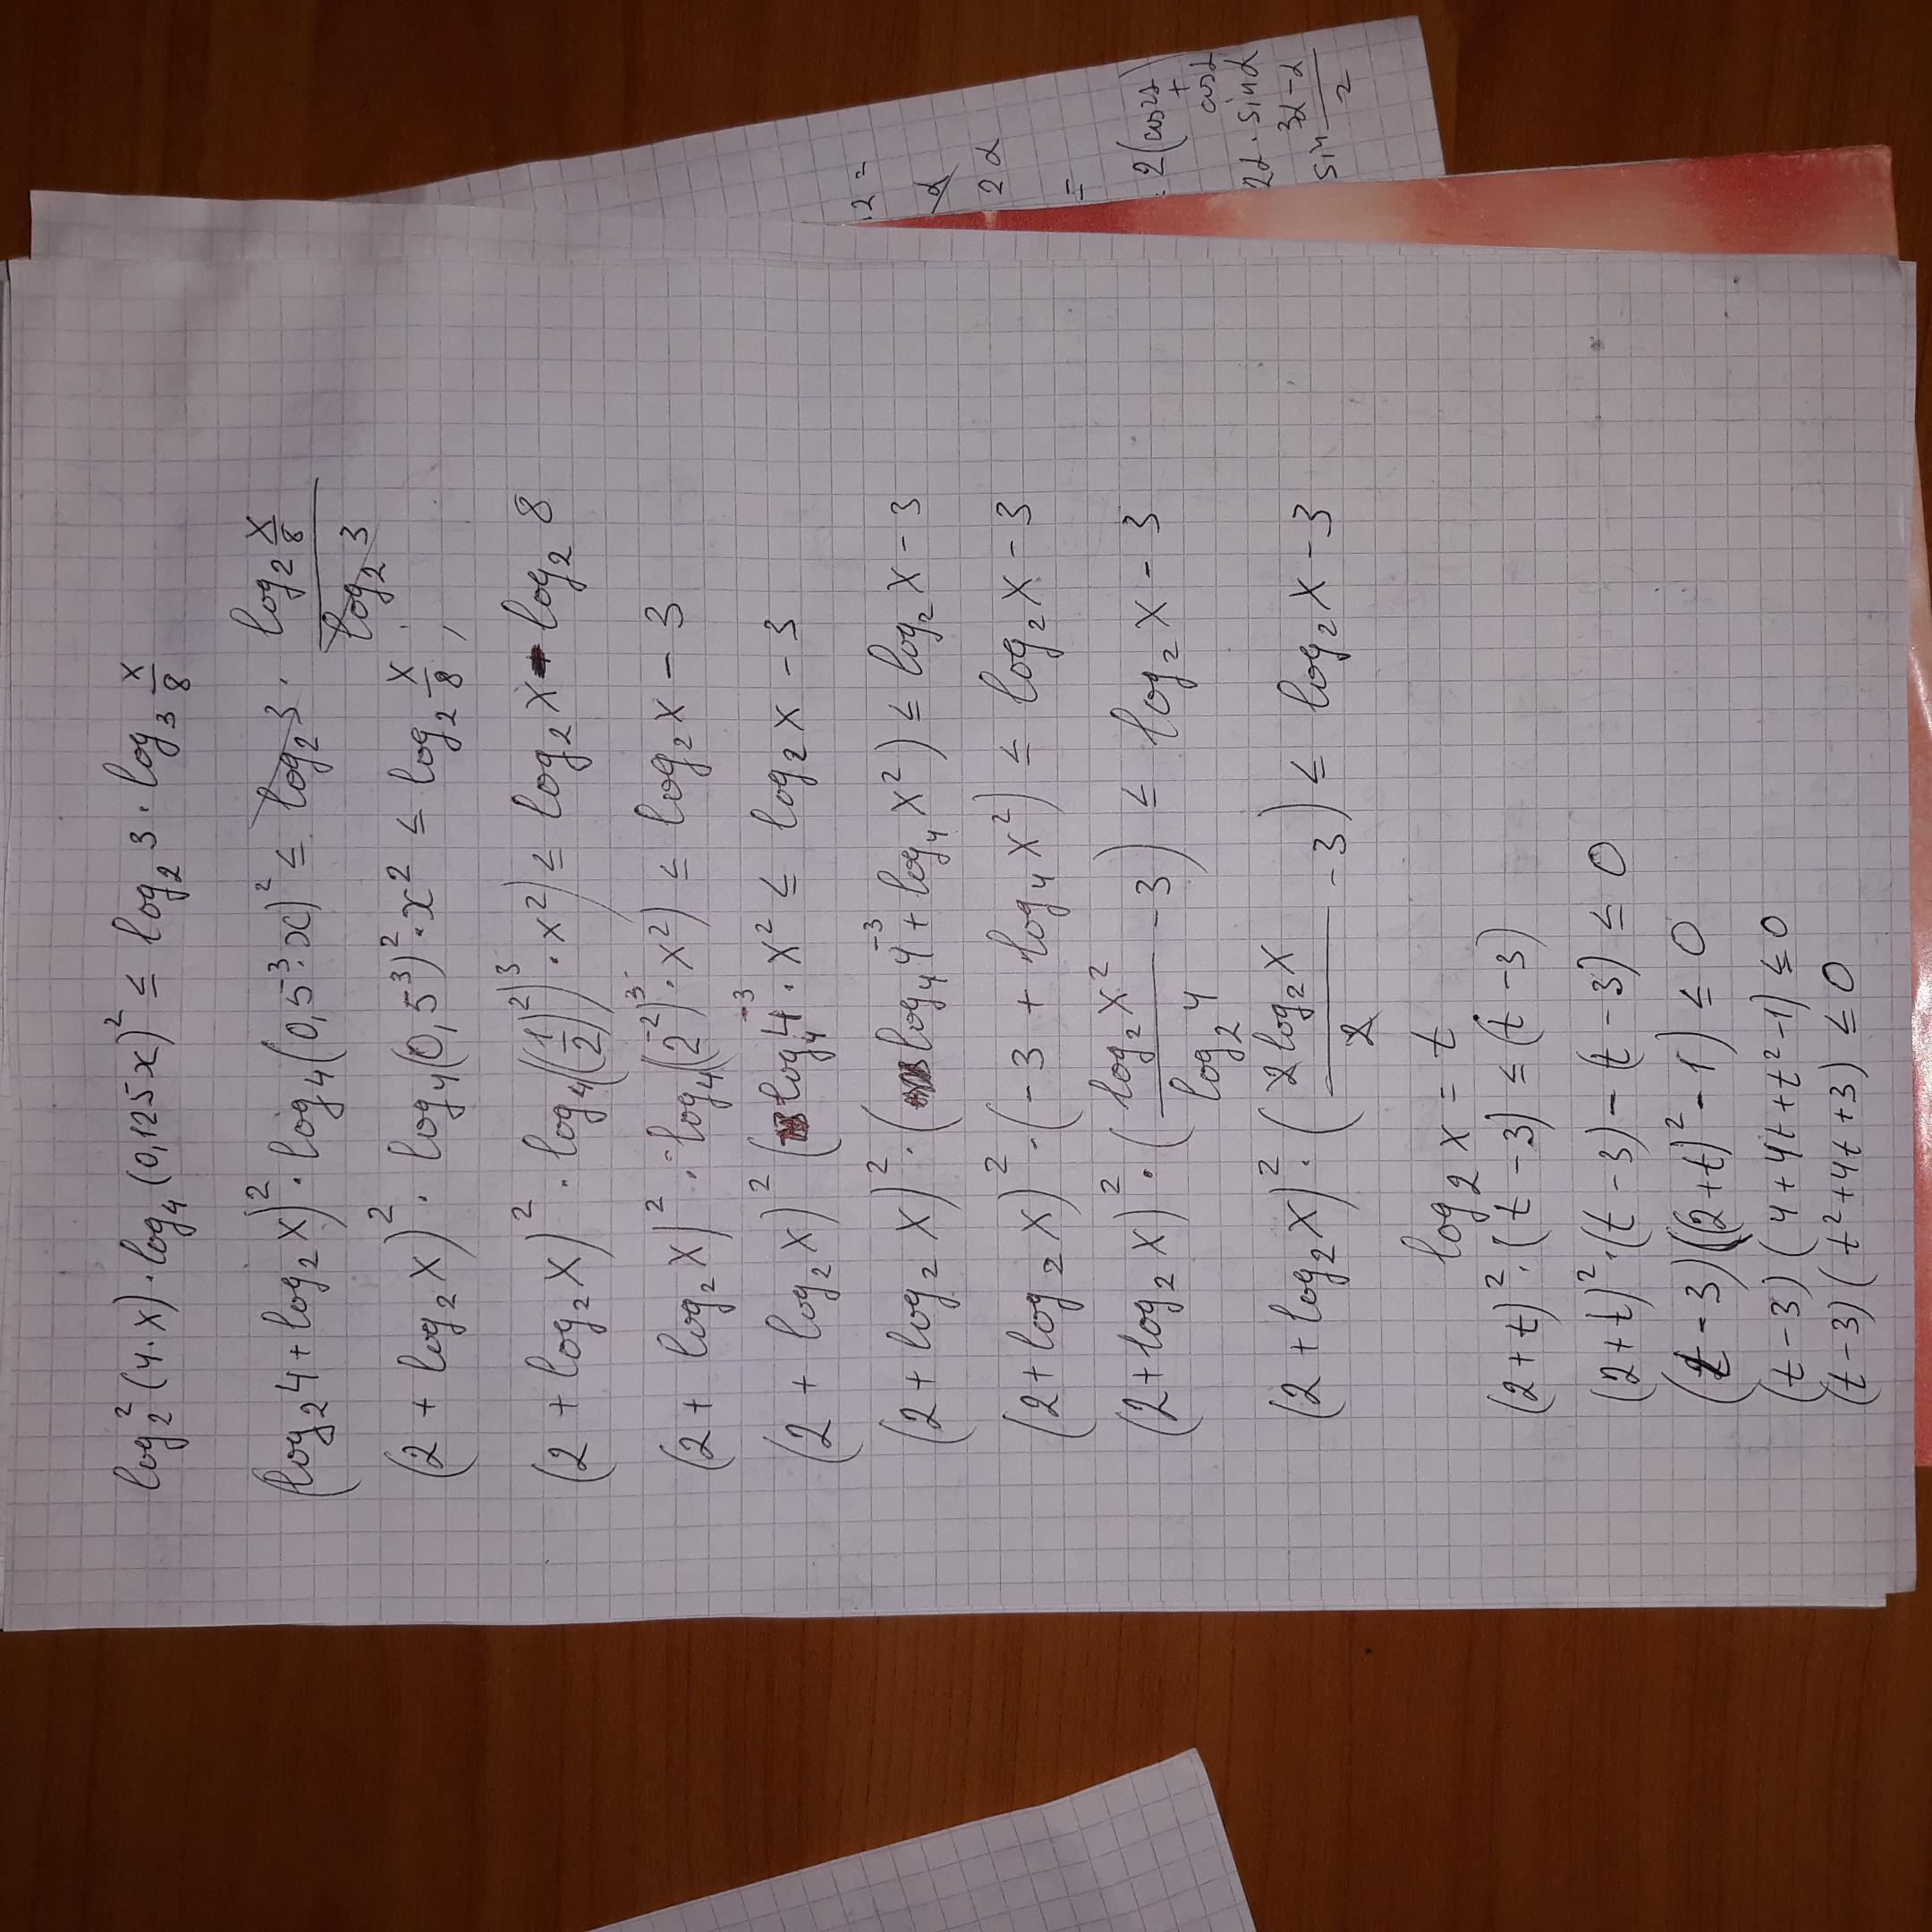 log₂²(4·x)·log₄(0,125x)² ≤ log₂3·log₃ x/8
(log₂4+log₂x)²·log₄(0,5⁻³·x)² ≤ log₂3·(log₂ x/8)/(log₂3)
(2+log₂x)²·log₄(0,5⁻³)²·x² ≤ log₂ x/8,
(2+log₂x)²·log₄(((1/2)²)³·x²) ≤ log₂x-log₂8
(2+log₂x)²·log₄((2⁻²)³·x²) ≤ log₂x-3
(2+log₂x)²(log₄4⁻³·x² ≤ log₂x-3
(2+log₂x)²·(log₄4⁻³+log₄x²) ≤ log₂x-3
(2+log₂x)²·(-3+log₄x²) ≤ log₂x-3
(2+log₂x)²·((log₂x²)/(log₂4)-3) ≤ log₂x-3
(2+log₂x)²·((2log₂x)/2-3) ≤ log₂x-3
log₂x=t
(2+t)²·(t-3) ≤ (t-3)
(2+t)²·(t-3)-(t-3) ≤ 0
(t-3)((2+t)²-1) ≤ 0
(t-3)(4+4t+t²-1) ≤ 0
(t-3)(t²+4t+3) ≤ 0
12=
α
2α
=
·2(cos2
+
cosα
2α·sinα
sin (3α-α)/2